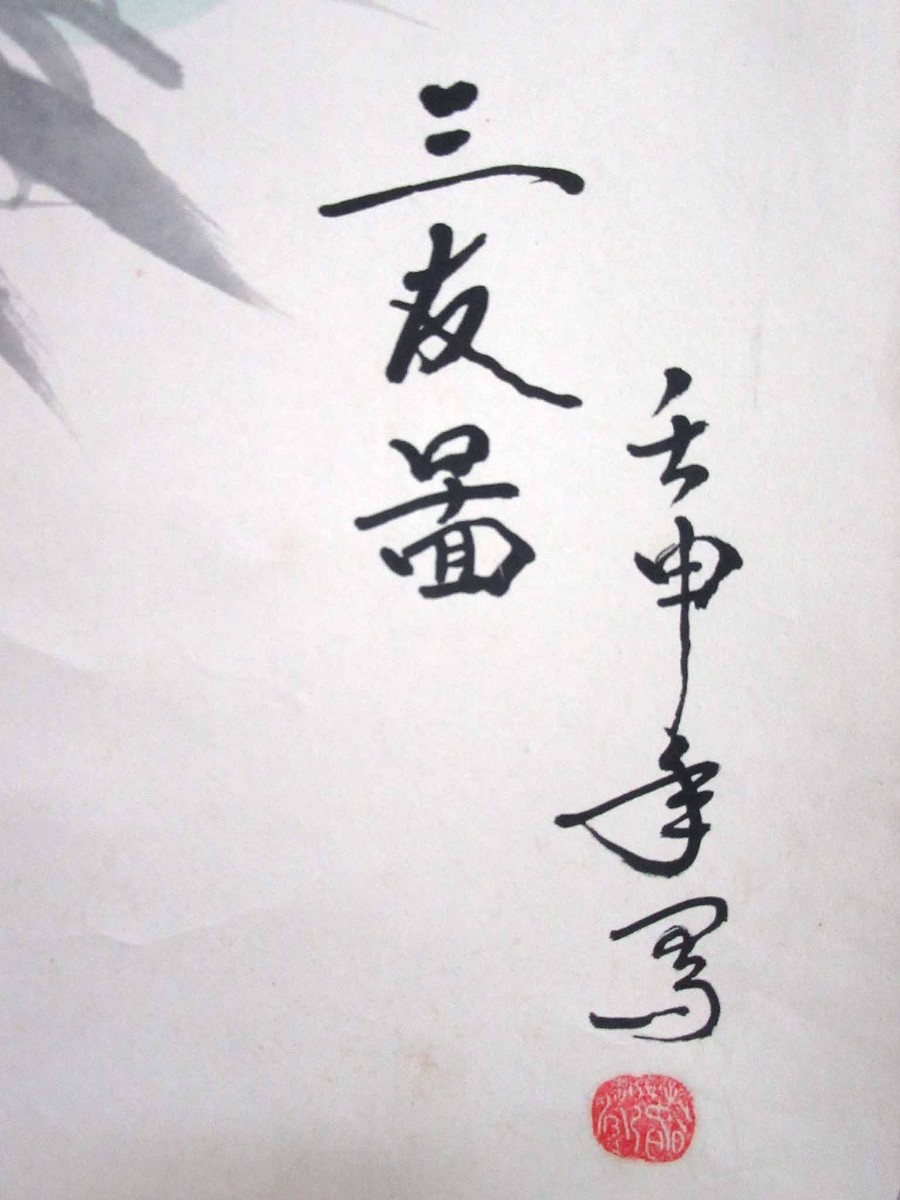 三友圖
壬申年寫